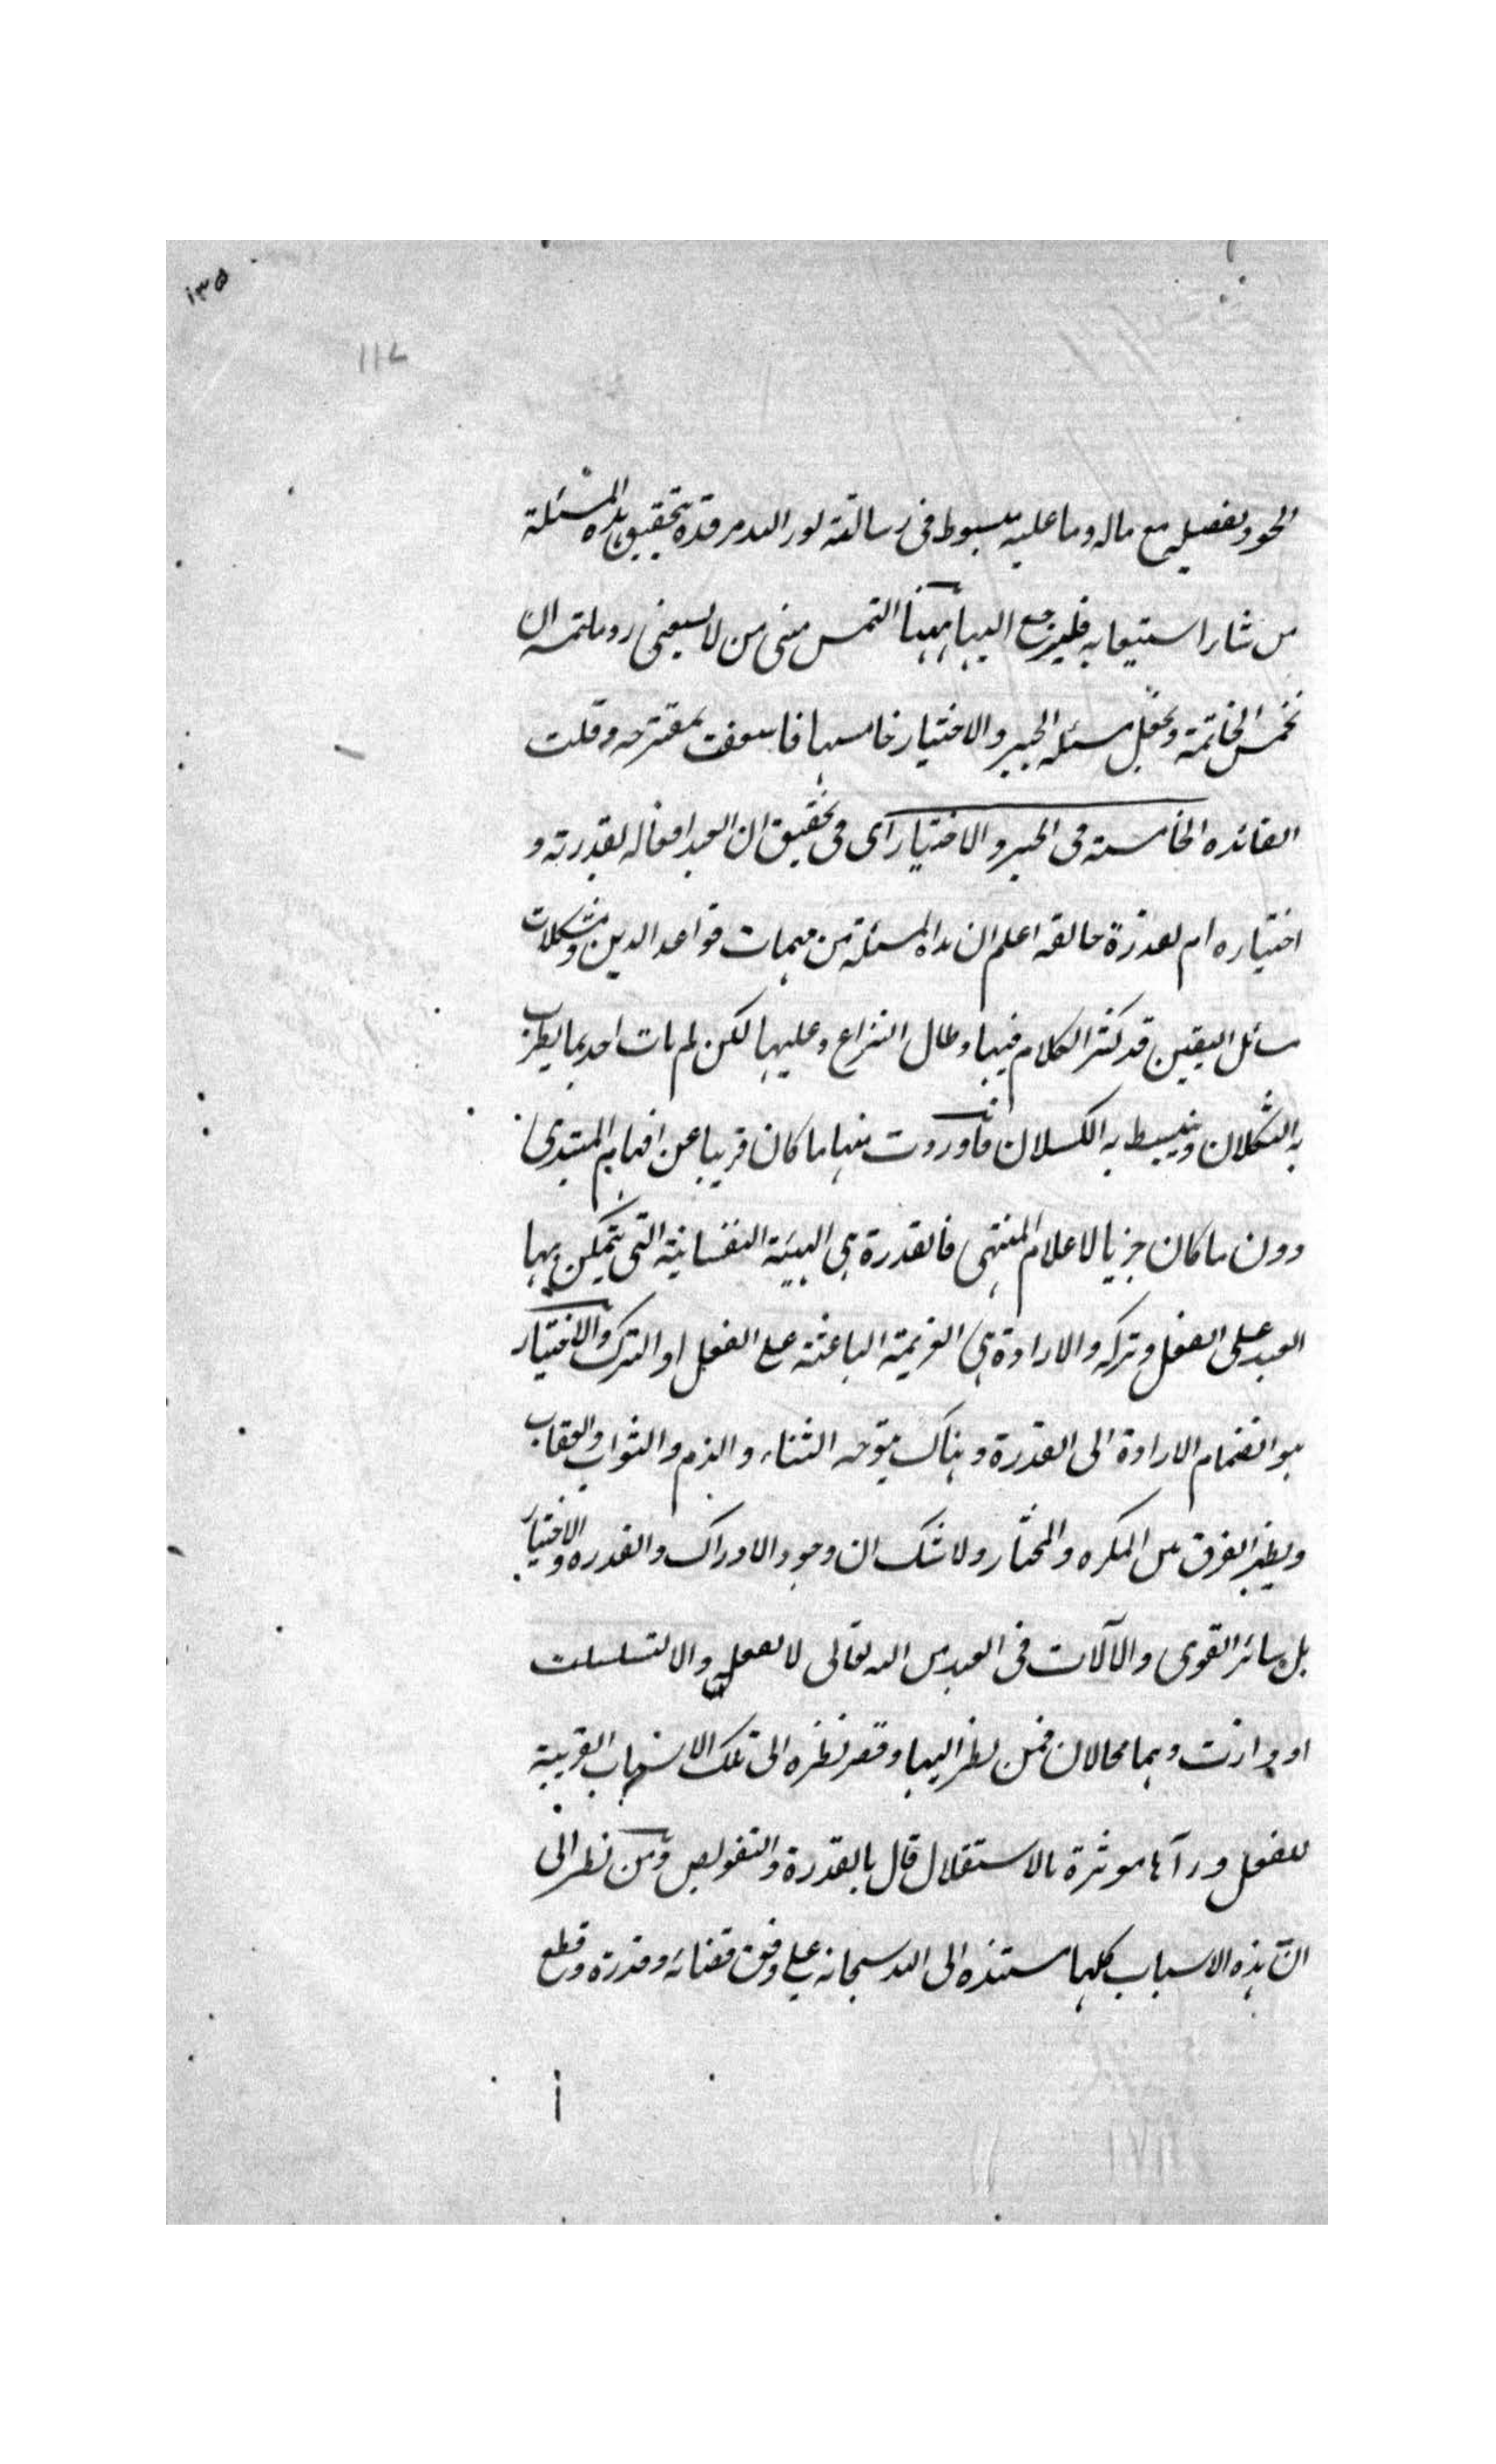 ١٣٥
١١٧
وتفصيله مع ماله وما عليه مبسوط فى رسالته نور الله مرقده بتحقيق هذه المسئلة
من شاء استيعابه فليرجع اليها ههنا التمس منى من لا يسعنى رد ملتمسه ان
نخمس الخاتمة ونجعل مسئلة الجبر والاختيار خامسها فاسعفت بمقترحه وقلت
الفائده الخامسة فى الجبر والاختيار اى فى تحقيق ان العبد افعاله بقدرته و
اختياره ام بقدرة خالقه اعلم ان هذه المسئلة من مهمات قواعد الدين ومشكلات
مسائل اليقين قد كثر الكلام فيها وطال النزاع وعليها لكن لم يات احد بما يطرب
به الثكلان وينبسط به الكسلان فاوردت منها ما كان قريبا عن افهام المبتدى
دون ما كان حريا لاعلام المنتهى فالقدرة هى الهيئة النفسانية التى يتمكن بها
العبد على الفعل وتركه والارادة هى العزيمة الباعثة على الفعل او الترك والاختيار
هو انضمام الارادة الى القدرة وهناك يتوجه الثناء والذم والثواب والعقاب
ويظهر الفرق بين المكره والمختار ولا شك ان وجود الادراك والقدره والاختيار
بل سائر القوى والآلات فى العبد من الله تعالى لا بفعل والا لتسلسلت
او دارت وهما محالان فمن نظر اليها وقصر نظره الى تلك الاسباب القريبة
للفعل ورآها موثرة بالاستقلال قال بالقدرة والتفويض ومن نظر الى
انّ هذه الاسباب كلها مستنده الى الله سبحانه على وفق قضائه وقدره وقطع